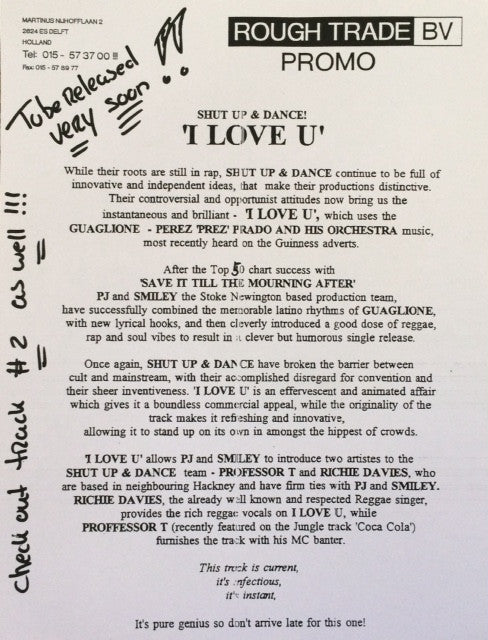 MARTINUS NIJHOFFLAAN 2
2624 ES DELFT
HOLLAND
Tel: 015 - 57 37 00 !!!
Fax: 015 - 57 89 77
ROUGH TRADE BV
PROMO
To be Released
very soon !!
SHUT UP & DANCE!
'I LOVE U'
While their roots are still in rap, SHUT UP & DANCE continue to be full of
innovative and independent ideas, that make their productions distinctive.
Their controversial and opportunist attitudes now bring us the
instantaneous and brilliant - 'I LOVE U', which uses the
GUAGLIONE - PEREZ 'PREZ' PRADO AND HIS ORCHESTRA music,
most recently heard on the Guinness adverts.
After the Top 50 chart success with
'SAVE IT TILL THE MOURNING AFTER'
PJ and SMILEY the Stoke Newington based production team,
have successfully combined the memorable latino rhythms of GUAGLIONE,
with new lyrical hooks, and then cleverly introduced a good dose of reggae,
rap and soul vibes to result in a clever but humorous single release.
Once again, SHUT UP & DANCE have broken the barrier between
cult and mainstream, with their accomplished disregard for convention and
their sheer inventiveness. 'I LOVE U' is an effervescent and animated affair
which gives it a boundless commercial appeal, while the originality of the
track makes it refreshing and innovative,
allowing it to stand up on its own in amongst the hippest of crowds.
'I LOVE U' allows PJ and SMILEY to introduce two artistes to the
SHUT UP & DANCE team - PROFESSOR T and RICHIE DAVIES, who
are based in neighbouring Hackney and have firm ties with PJ and SMILEY.
RICHIE DAVIES, the already well known and respected Reggae singer,
provides the rich reggae vocals on I LOVE U, while
PROFFESSOR T (recently featured on the Jungle track 'Coca Cola')
furnishes the track with his MC banter.
This track is current,
it's infectious,
it's instant,
It's pure genius so don't arrive late for this one!
check out track #2 as well !!!